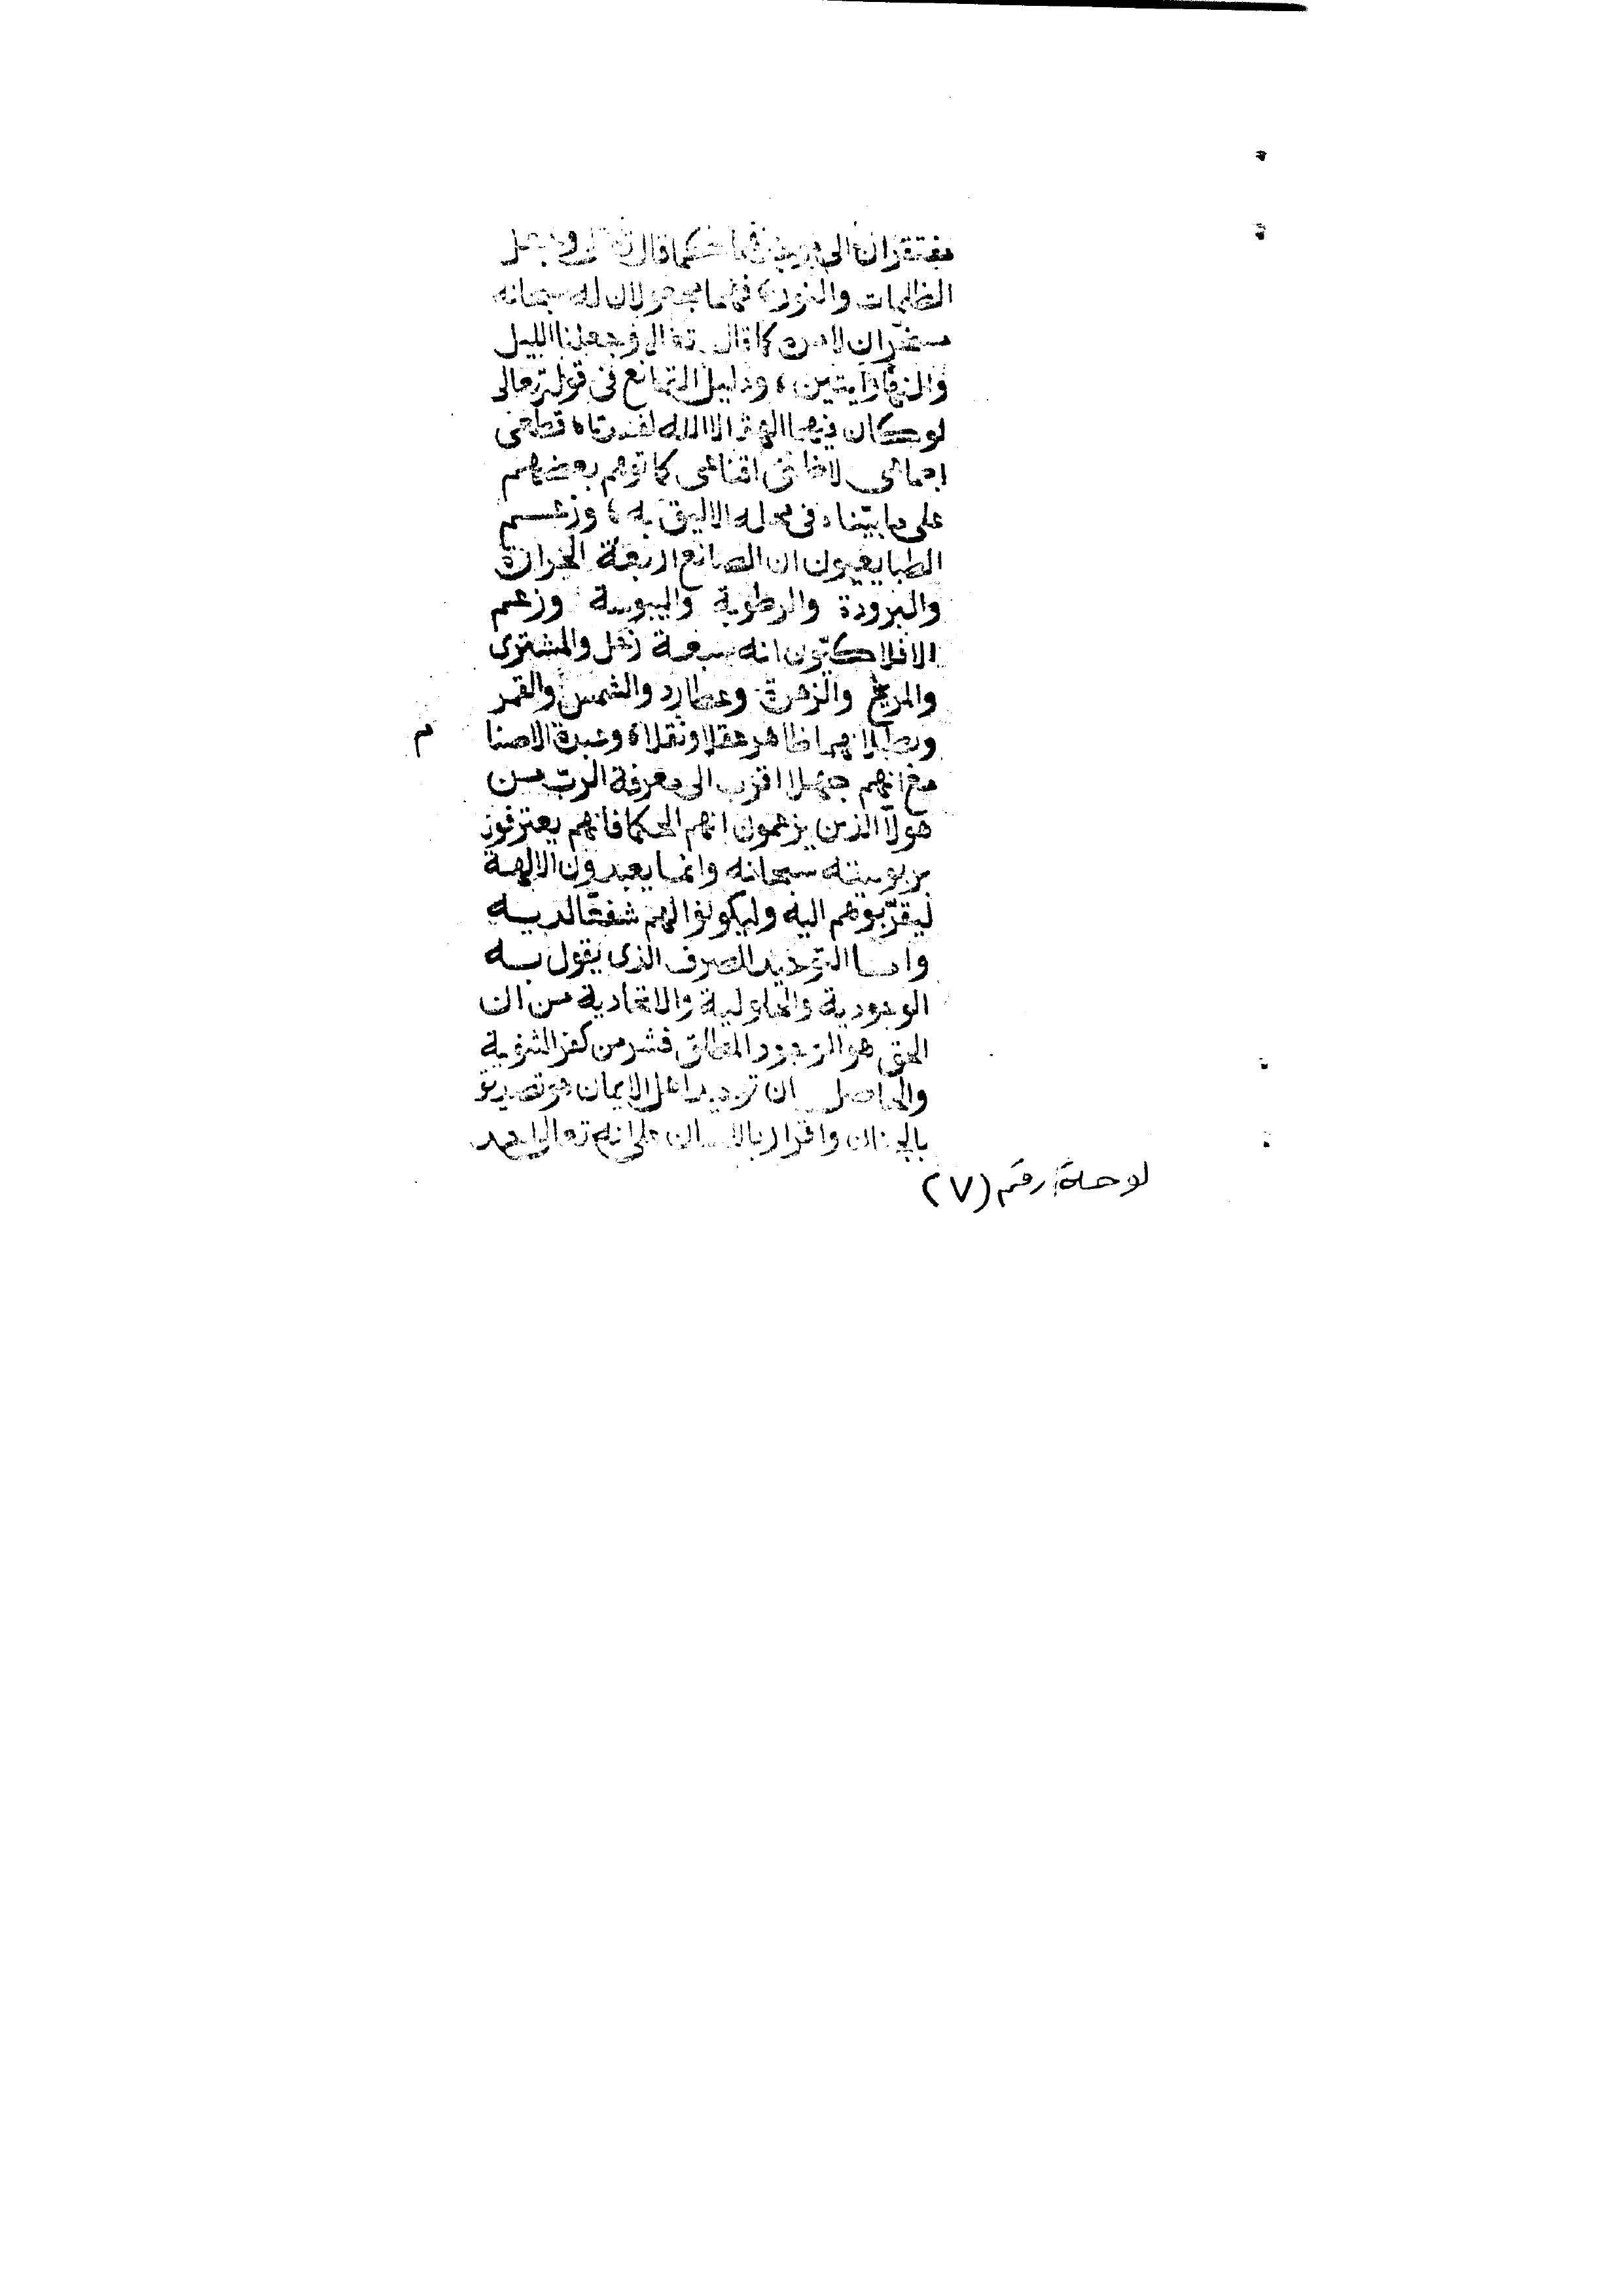 مفتقران الى كما قال تعالى وجعل
الظلمات والنور، فهما مجعولان له سبحانه
مسخران لامره كما قال تعالى وجعلنا الليل
والنهار ايتين، ودليل التمانع فى قوله تعالى
لو كان فيهما الهة الا الله لفسدتا، قطعى
اجمالى لا ظنى اقناعى كما توهم بعضهم
على ما بيناه فى محله الاليق به، وزعم
الطبايعيون ان الصانع اربعة الحرارة
والبرودة والرطوبة واليبوسة وزعم
الافلاكيون انه سبعة زحل والمشترى
والمريخ والزهرة وعطارد والشمس والقمر
وبطلانهما ظاهر عقلا ونقلا، وعبدة الاصنا م
مع انهم جهلا اقرب الى معرفة الرب من
هولآ الذين يزعمون انهم الحكما فانهم يعترفون
بربوبيته سبحانه وانما يعبدون الالهة
ليقرّبوهم اليه وليكونوا لهم شفعّا لديه
واما التوحيد الصرف الذى يقول به
الوجودية والحلولية والاتحادية من ان
الحق هو الوجود المطلق فشر من كفر الثنوية
والحاصل ان توحيد اهل الايمان هو تصديق
بالجنان واقرار باللسان على انه تعالى احد
لوحة رقم (٧)